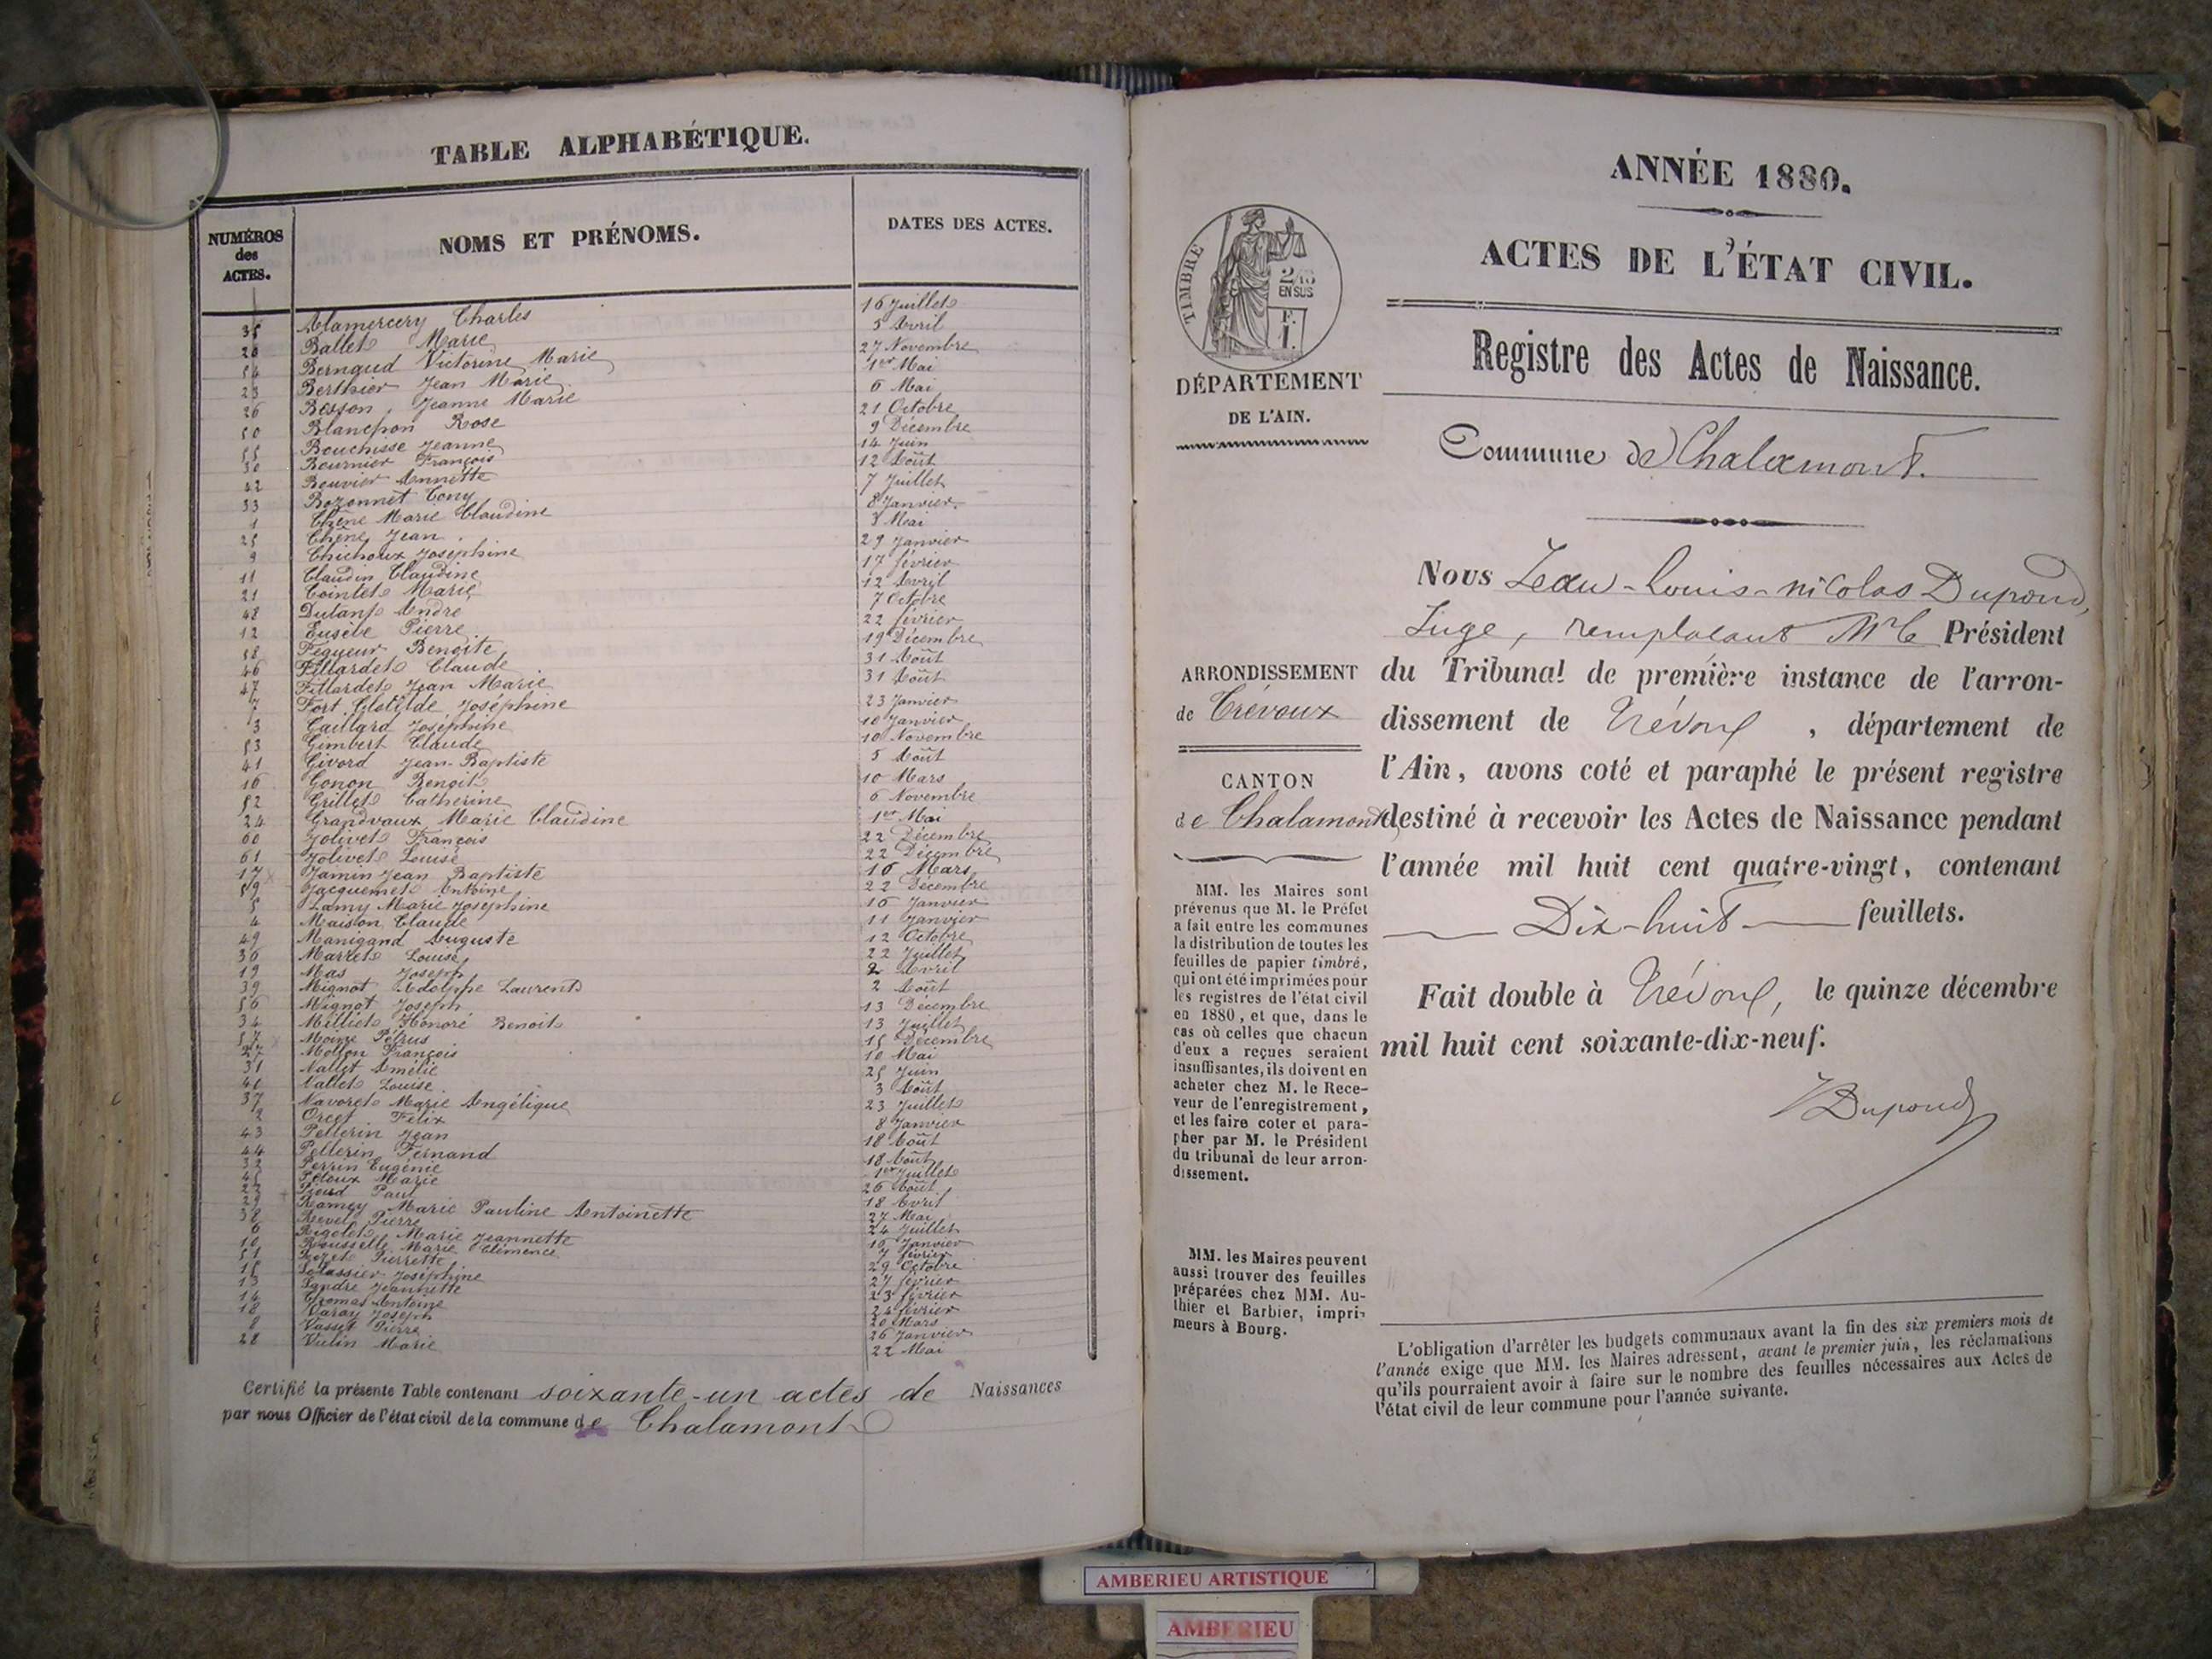 TABLE ALPHABÉTIQUE.
NUMÉROS des ACTES.
NOMS ET PRÉNOMS.
DATES DES ACTES.
35 Alamercery Charles 16 Juillet
20 Ballet Marie 5 Avril
54 Bernaud Victorine Marie 27 Novembre
23 Berthier Jean Marie 1er Mai
26 Besson Jeanne Marie 6 Mai
50 Blanchon Rose 21 Octobre
55 Bouchisse Jeanne 9 Décembre
30 Bournier François 14 Juin
42 Bouvier Annette 12 Août
33 Bozonnet Tony 7 Juillet
1 Chêne Marie Claudine 8 Janvier
25 Chêne Jean 3 Mai
9 Chichoux Joséphine 29 Janvier
11 Claudin Claudine 17 février
21 Cointet Marie 12 Avril
48 André 7 Octobre
12 Eusèbe Pierre 22 février
58 Benoite 19 Décembre
46 Fillardet Claude 31 Août
47 Fillardet Jean Marie 31 Août
7 Fort Clotilde Joséphine 23 Janvier
3 Gaillard Joséphine 10 Janvier
53 Gimbert Claude 10 Novembre
41 Givord Jean-Baptiste 5 Août
16 Gonon Benoit 10 Mars
52 Grillet Catherine 6 Novembre
24 Grandvaux Marie Claudine 1er Mai
60 Jolivet François 22 Décembre
61 Jolivet Louise 22 Décembre
17 Jamin Jean Baptiste 16 Mars
59 Jacquemet Antoine 22 Décembre
5 Lamy Marie Joséphine 16 Janvier
4 Maison Claude 11 Janvier
49 Manigand Auguste 12 Octobre
36 Marret Louise 22 Juillet
19 Mas Joseph 2 Avril
39 Mignot Adolphe Laurent 2 Août
56 Mignot Joseph 13 Décembre
34 Milliet Honoré Benoit 13 Juillet
57 Moine Pétrus 15 Décembre
27 Mollon François 10 Mai
31 Nallet Amélie 25 Juin
40 Nallet Louise 3 Août
37 Navoret Marie Angélique 23 Juillet
2 Orcet Félix 8 Janvier
43 Pellerin Jean 18 Août
44 Pellerin Fernand 18 Août
32 Perrin Eugénie 1er Juillet
45 Péloux Marie 26 Août
Paul 18 Avril
29 Ramey Marie Pauline Antoinette 27 Mai
38 Revel Pierre 24 Juillet
6 Rigolet Marie Jeannette 16 Janvier
10 Rousselle Marie Clémence 7 février
51 Rozet Pierrette 29 Octobre
15 Joséphine 27 février
13 Jeannette 23 février
14 Thomas Antoine 24 février
18 Varay Joseph 20 Mars
8 Vasset Pierre 26 Janvier
28 Vulin Marie 22 Mai
Certifié la présente Table contenant soixante-un actes de Naissances
par nous Officier de l'état civil de la commune de Chalamont
ANNÉE 1880.
ACTES DE L'ÉTAT CIVIL.
TIMBRE
2/10
EN SUS
F.
1.
DÉPARTEMENT
DE L'AIN.
Registre des Actes de Naissance.
Commune de Chalamont.
Nous Jean-Louis-nicolas Dupond,
Juge, remplaçant Mr le Président
du Tribunal de première instance de l'arron-
dissement de Trévoux, département de
l'Ain, avons coté et paraphé le présent registre
destiné à recevoir les Actes de Naissance pendant
l'année mil huit cent quatre-vingt, contenant
Dix-huit feuillets.
Fait double à Trévoux, le quinze décembre
mil huit cent soixante-dix-neuf.
Dupond
ARRONDISSEMENT
de Trévoux
CANTON
de Chalamont
MM. les Maires sont
prévenus que M. le Préfet
a fait entre les communes
la distribution de toutes les
feuilles de papier timbré,
qui ont été imprimées pour
les registres de l'état civil
en 1880, et que, dans le
cas où celles que chacun
d'eux a reçues seraient
insuffisantes, ils doivent en
acheter chez M. le Rece-
veur de l'enregistrement,
et les faire coter et para-
pher par M. le Président
du tribunal de leur arron-
dissement.
MM. les Maires peuvent
aussi trouver des feuilles
préparées chez MM. Au-
thier et Barbier, impri-
meurs à Bourg.
L'obligation d'arrêter les budgets communaux avant la fin des six premiers mois de
l'année exige que MM. les Maires adressent, avant le premier juin, les réclamations
qu'ils pourraient avoir à faire sur le nombre des feuilles nécessaires aux Actes de
l'état civil de leur commune pour l'année suivante.
AMBERIEU ARTISTIQUE
AMBERIEU